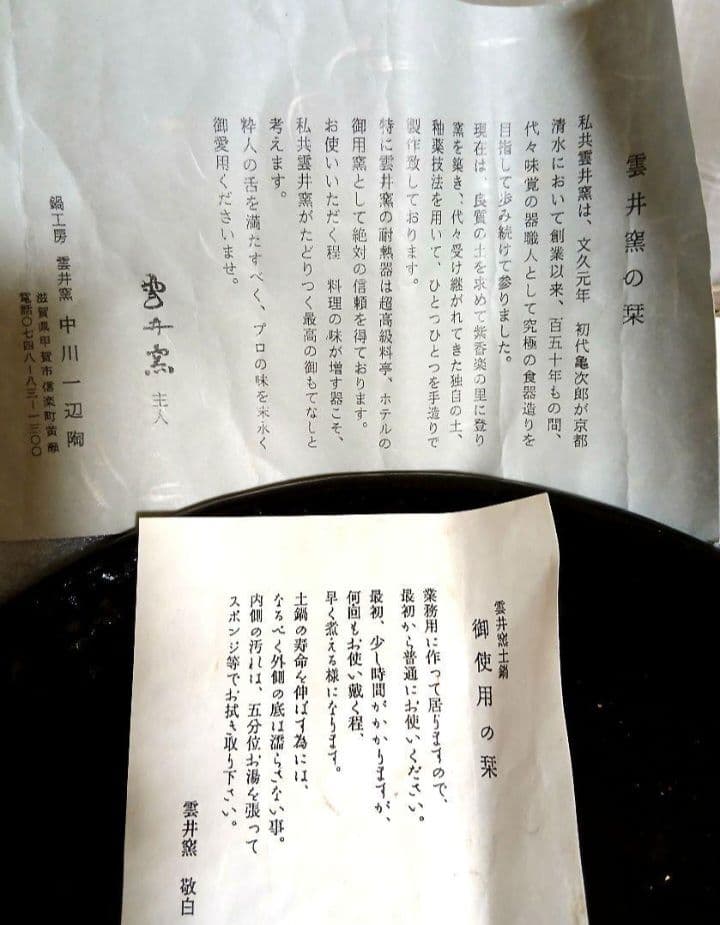 雲井窯の栞
私共雲井窯は、文久元年　初代亀次郎が京都
清水において創業以来、百五十年もの間、
代々味覚の器職人として究極の食器造りを
目指して歩み続けて参りました。
現在は、良質の土を求めて紫香楽の里に登り
窯を築き、代々受け継がれてきた独自の土、
釉薬技法を用いて、ひとつひとつを手造りで
製作致しております。
特に雲井窯の耐熱器は超高級料亭、ホテルの
御用窯として絶対の信頼を得ております。
お使いいただく程　料理の味が増す器こそ、
私共雲井窯がたどりつく最高の御もてなしと
考えます。
粋人の舌を満たすべく、プロの味を末永く
御愛用くださいませ。
雲井窯 主人
鍋工房 雲井窯 中川一辺陶
滋賀県甲賀市信楽町黄瀬
電話〇七四八-八三-一三〇〇
雲井窯土鍋
御使用の栞
業務用に作って居りますので、
最初から普通にお使いください。
最初、少し時間がかかりますが、
何回もお使い戴く程、
早く煮える様になります。
土鍋の寿命を伸ばす為には、
なるべく外側の底は濡らさない事。
内側の汚れは、五分位お湯を張って
スポンジ等でお拭き取り下さい。
雲井窯 敬白